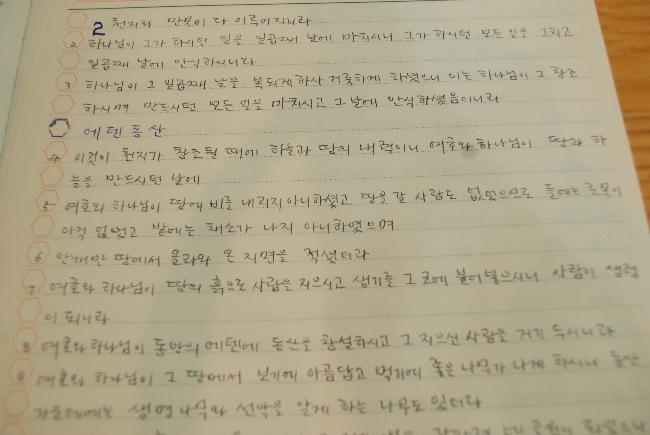 2 천지와 만물이 다 이루어지니라
2 하나님이 그가 하시던 일을 일곱째 날에 마치시니 그가 하시던 모든 일을 그치고
일곱째 날에 안식하시니라
3 하나님이 그 일곱째 날을 복되게하사 거룩하게 하셨으니 이는 하나님이 그 창조
하시며 만드시던 모든 일을 마치시고 그날에 안식하셨음이니라
에덴동산
4 이것이 천지가 창조될 때에 하늘과 땅의 내력이니 여호와 하나님이 땅과 하
늘을 만드시던 날에
5 여호와 하나님이 땅에 비를 내리지아니하셨고 땅을 갈 사람도 없었으므로 들에는 초목이
아직 없었고 밭에는 채소가 나지 아니하였으며
6 안개만 땅에서 올라와 온 지면을 적셨더라
7 여호와 하나님이 땅의 흙으로 사람을 지으시고 생기를 그 코에 불어넣으시니 사람이 생령
이 되니라
8 여호와하나님이 동방의 에덴에 동산을 창설하시고 그 지으신 사람을 거기 두시니라
9 여호와 하나님이 그 땅에서 보기에 아름답고 먹기에 좋은 나무가 나게 하시니 동산
가운데에는 생명나무와 선악을 알게 하는 나무도 있더라